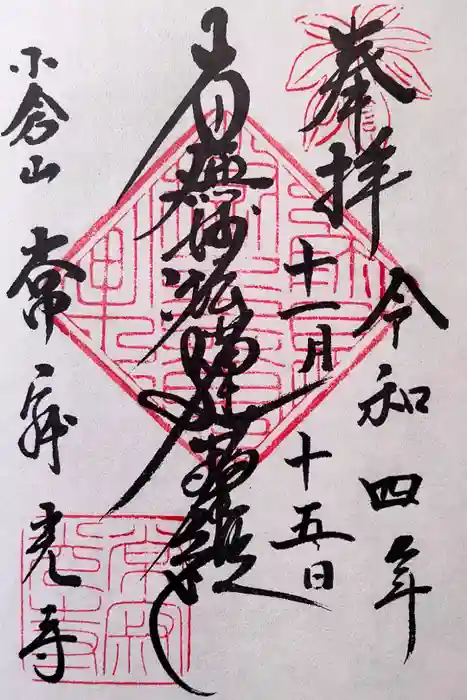 奉拝
令和四年
十一月十五日
南無妙法蓮華経
小倉山
常寂光寺